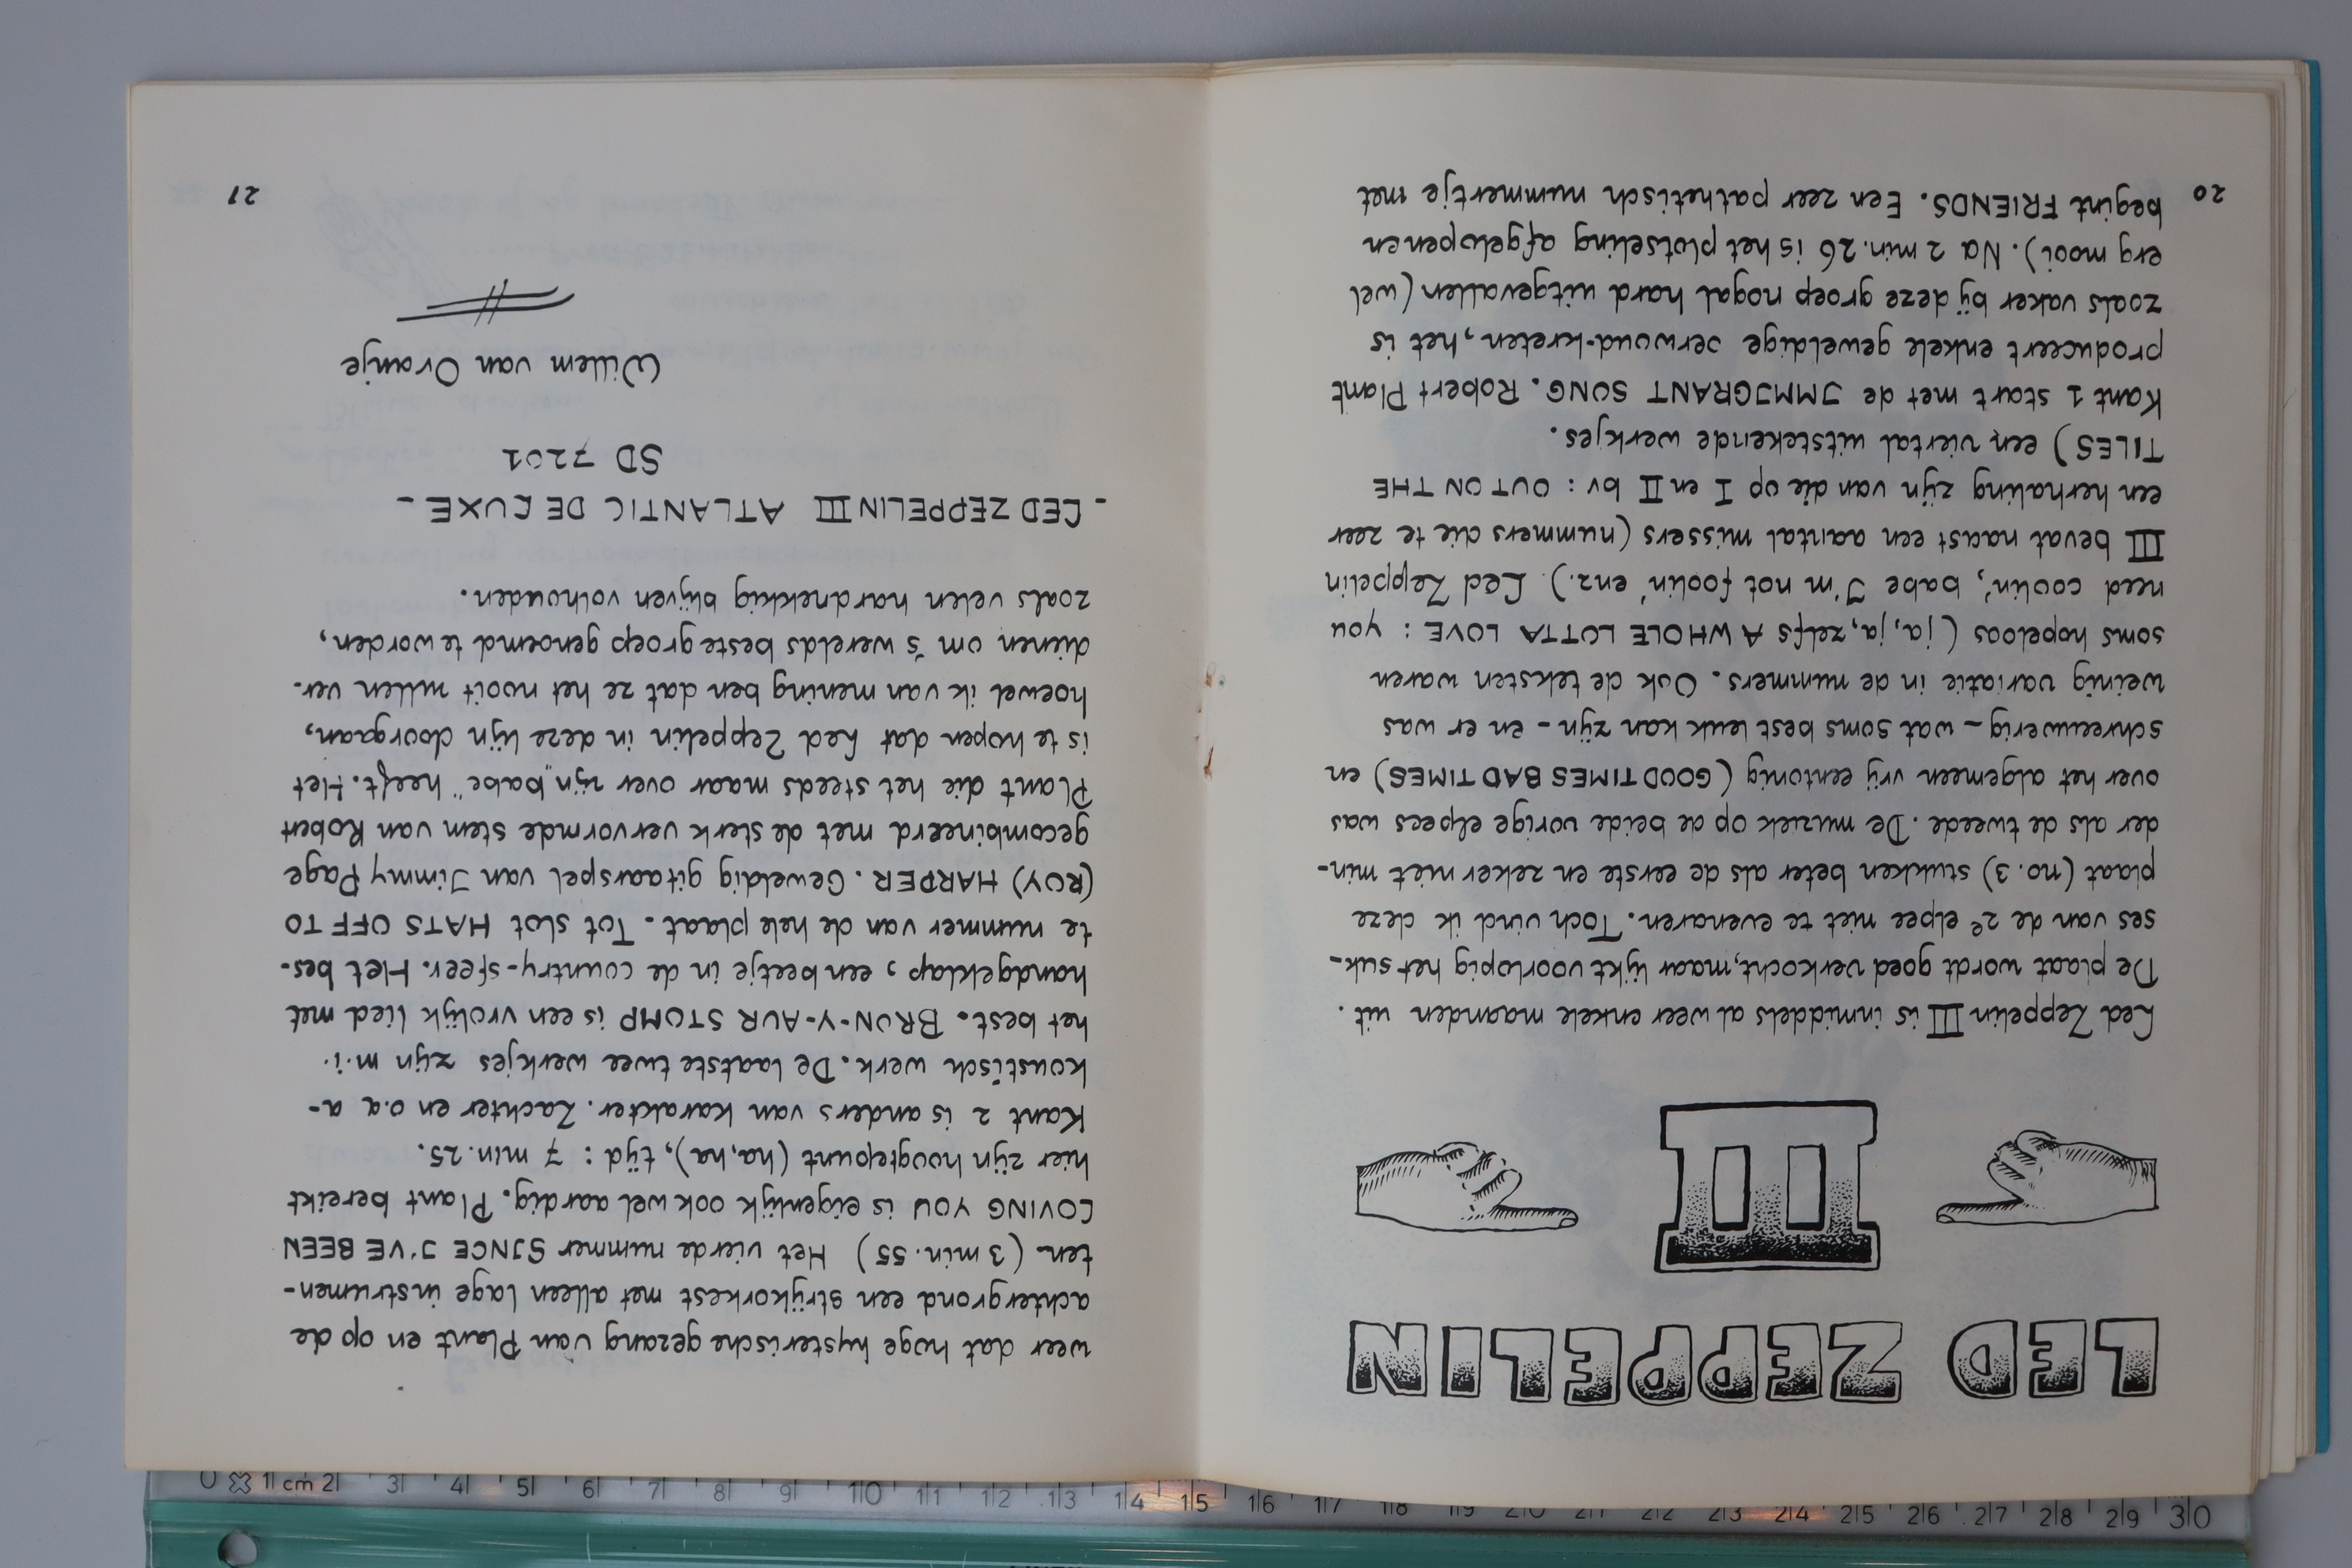 LED ZEPPELIN
III
Led Zeppelin III is inmiddels al weer enkele maanden uit.
De plaat wordt goed verkocht, maar lijkt voorlopig het suk-
ses van de 2e elpee niet te evenaren. Toch vind ik deze
plaat (no. 3) stukken beter als de eerste en zeker niet min-
der als de tweede. De muziek op de beide vorige elpees was
over het algemeen vrij eentonig (GOOD TIMES BAD TIMES) en
schreeuwerig - wat soms best leuk kan zijn - en er was
weinig variatie in de nummers. Ook de teksten waren
soms hopeloos (ja, ja, zelfs A WHOLE LOTTA LOVE : you
need coolin', babe I'm not foolin' enz.). Led Zeppelin
III bevat naast een aantal missers (nummers die te zeer
een herhaling zijn van die op I en II bv : OUT ON THE
TILES) een viertal uitstekende werkjes.
Kant 1 start met de IMMIGRANT SONG. Robert Plant
produceert enkele geweldige oerwoud-kreten, het is
zoals vaker bij deze groep nogal hard uitgevallen (wel
erg mooi). Na 2 min. 26 is het plotseling afgelopen en
begint FRIENDS. Een zeer pathetisch nummertje met
20
weer dat hoge hysterische gezang van Plant en op de
achtergrond een strijkorkest met alleen lage instrumen-
ten. (3 min. 55) Het vierde nummer SINCE I'VE BEEN
LOVING YOU is eigenlijk ook wel aardig. Plant bereikt
hier zijn hoogtepunt (ha, ha), tijd : 7 min. 25.
Kant 2 is anders van karakter. Zachter en o.a a-
koustisch werk. De laatste twee werkjes zijn m.i.
het best. BRON-Y-AUR STOMP is een vrolijk lied met
handgeklap, een beetje in de country-sfeer. Het bes-
te nummer van de hele plaat. Tot slot HATS OFF TO
(ROY) HARPER. Geweldig gitaarspel van Jimmy Page
gecombineerd met de sterk vervormde stem van Robert
Plant die het steeds maar over zijn „babe" heeft. Het
is te hopen dat Led Zeppelin in deze lijn doorgaan,
hoewel ik van mening ben dat ze het nooit zullen ver-
dienen om 's werelds beste groep genoemd te worden,
zoals velen hardnekkig blijven volhouden.
- LED ZEPPELIN III ATLANTIC DE LUXE -
SD 7201
Willem van Oranje
21
0 1 cm 2 3 4 5 6 7 8 9 10 11 12 13 14 15 16 17 18 19 20 21 22 23 24 25 26 27 28 29 30